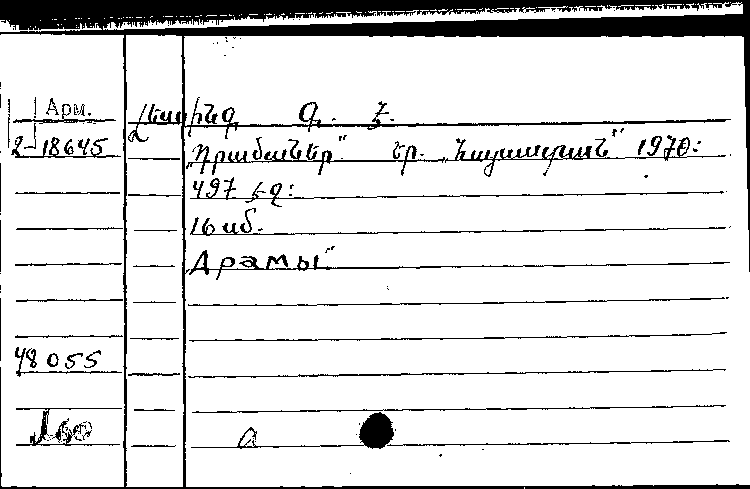 Арм.
Լեսինգ Գ. Է.
2-18645
„Դրամաներ" Եր. „Հայաստան" 1970:
497 էջ:
16 սմ.
Драмы"
48055
а